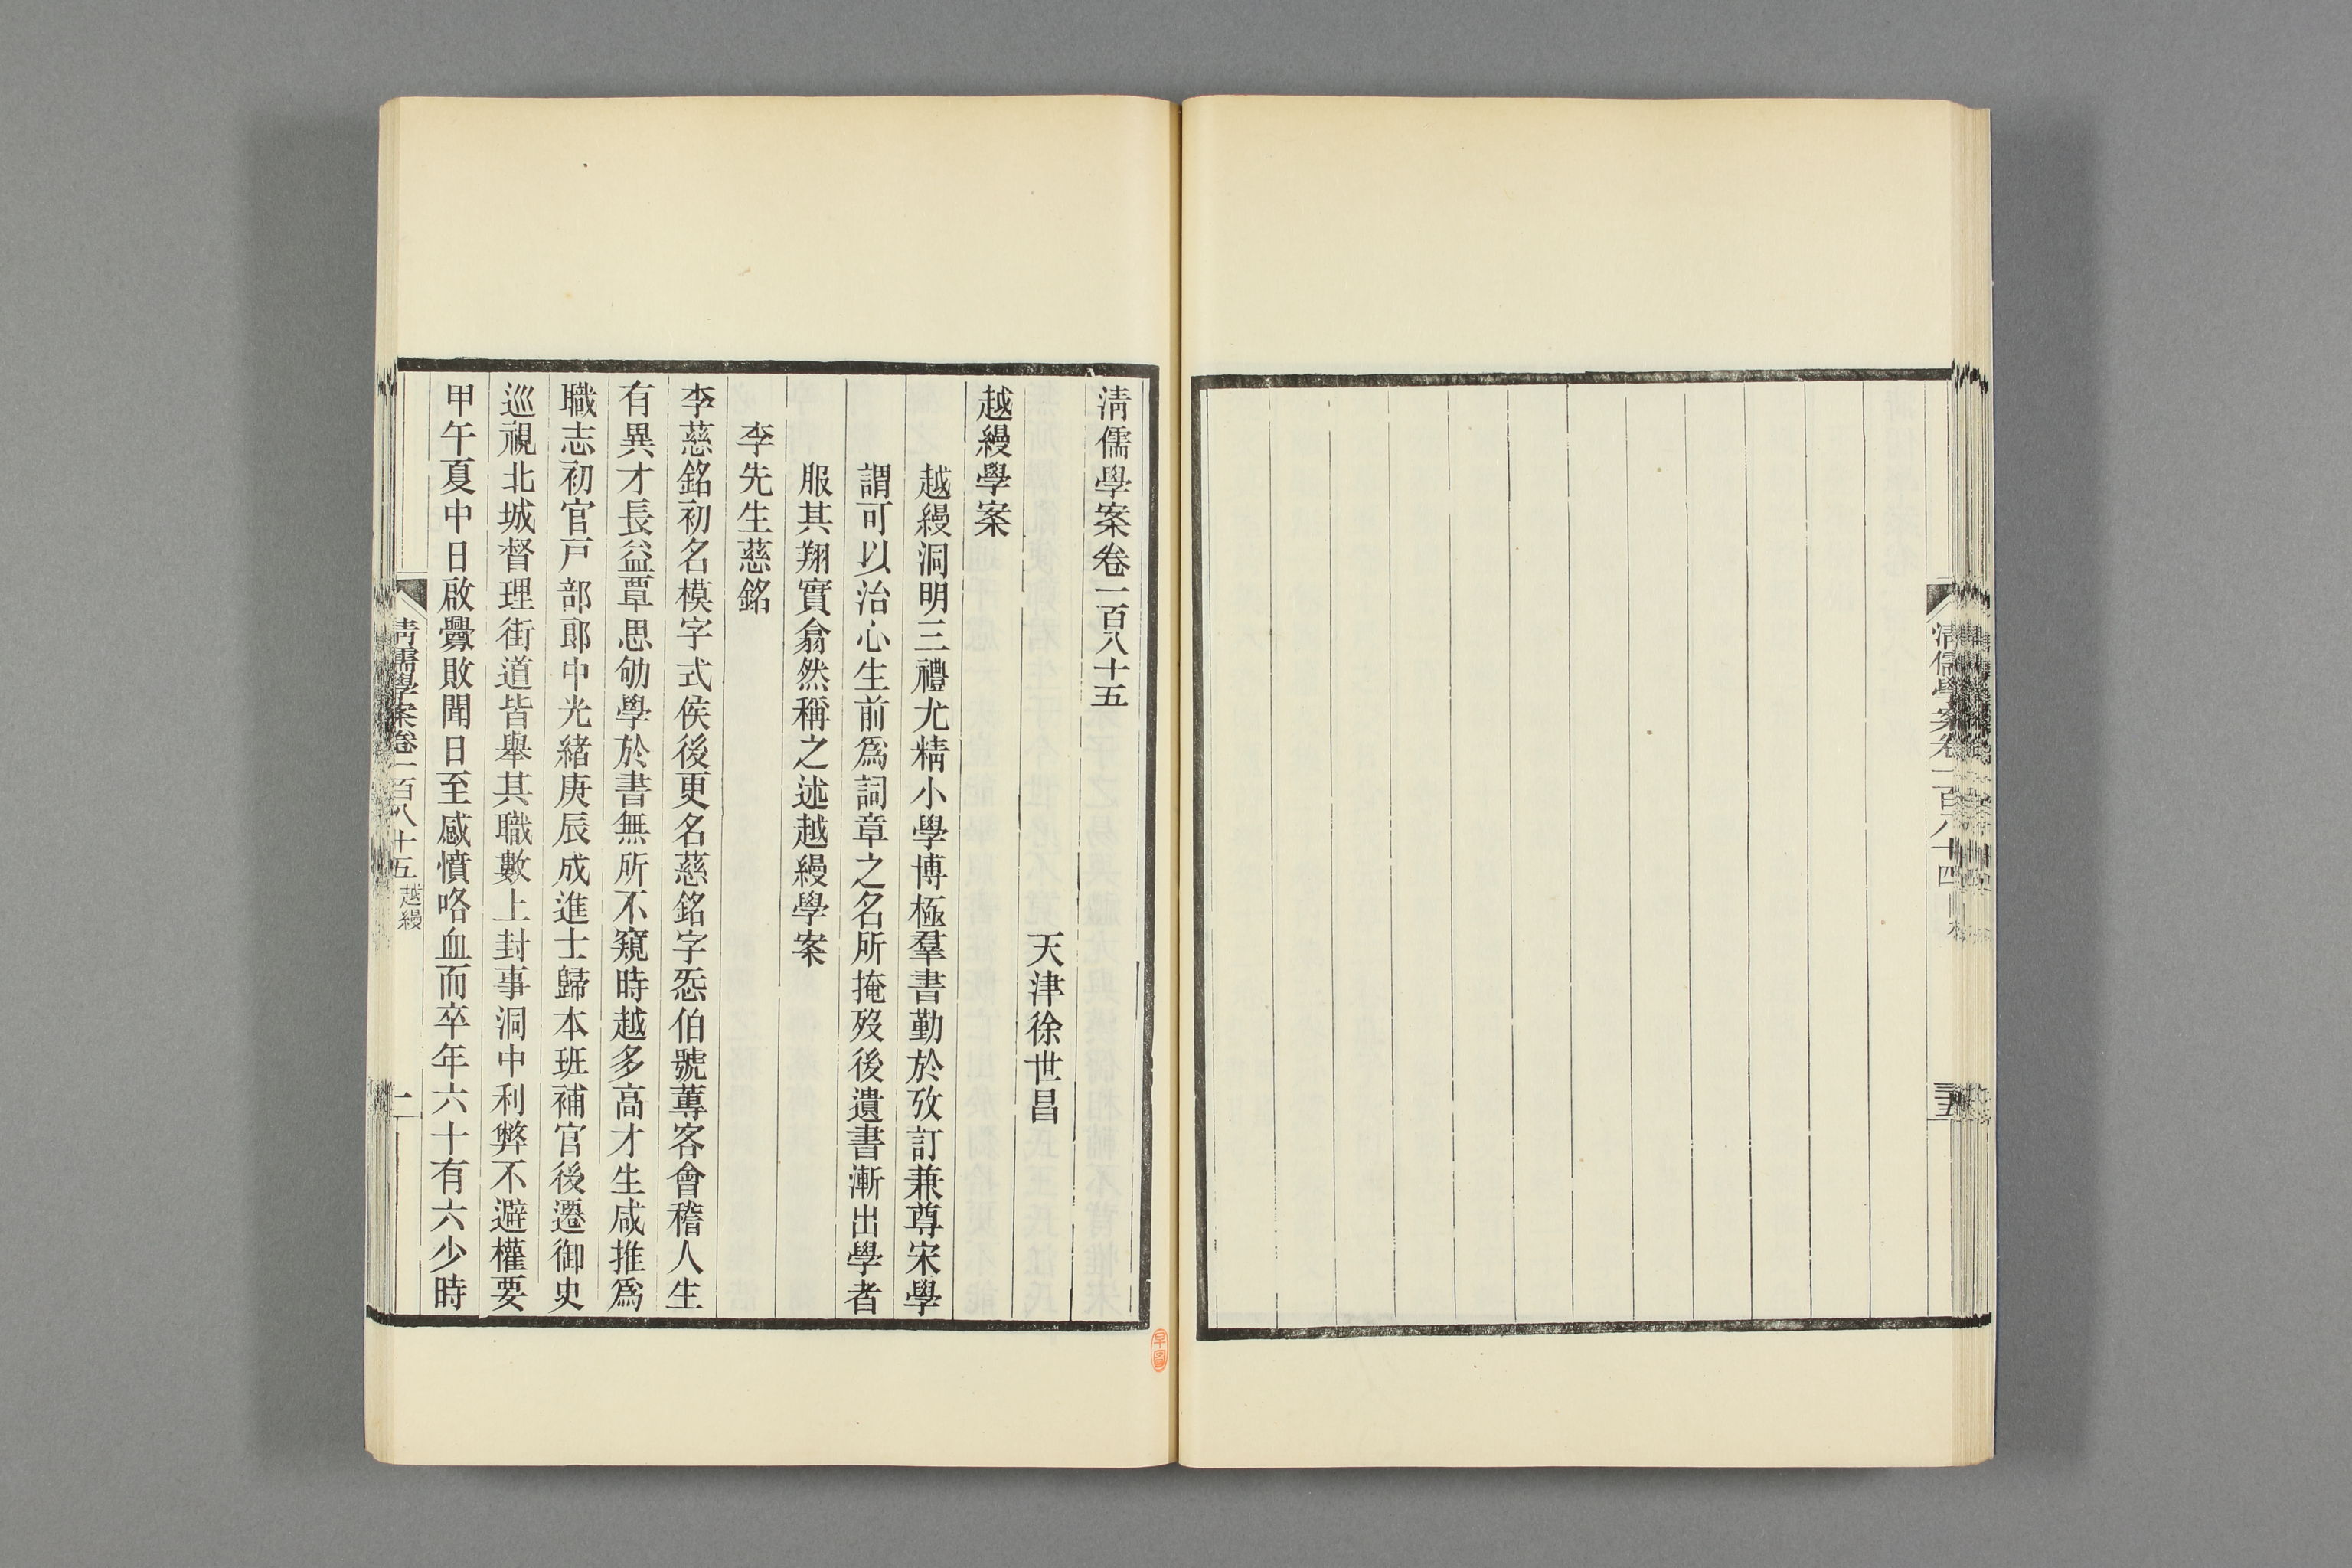 清儒學案卷一百八十四
三五
清儒學案卷一百八十五
天津徐世昌
越縵學案
越縵洞明三禮尤精小學博極羣書勤於攷訂兼尊宋學
謂可以治心生前爲詞章之名所掩歿後遺書漸出學者
服其翔實翕然稱之述越縵學案
李先生慈銘
李慈銘初名模字式侯後更名慈銘字㤅伯號蓴客會稽人生
有異才長益覃思劬學於書無所不窺時越多高才生咸推爲
職志初官戶部郞中光緒庚辰成進士歸本班補官後遷御史
巡視北城督理街道皆舉其職數上封事洞中利弊不避權要
甲午夏中日啟釁敗聞日至感憤咯血而卒年六十有六少時
清儒學案卷一百八十五 越縵
一